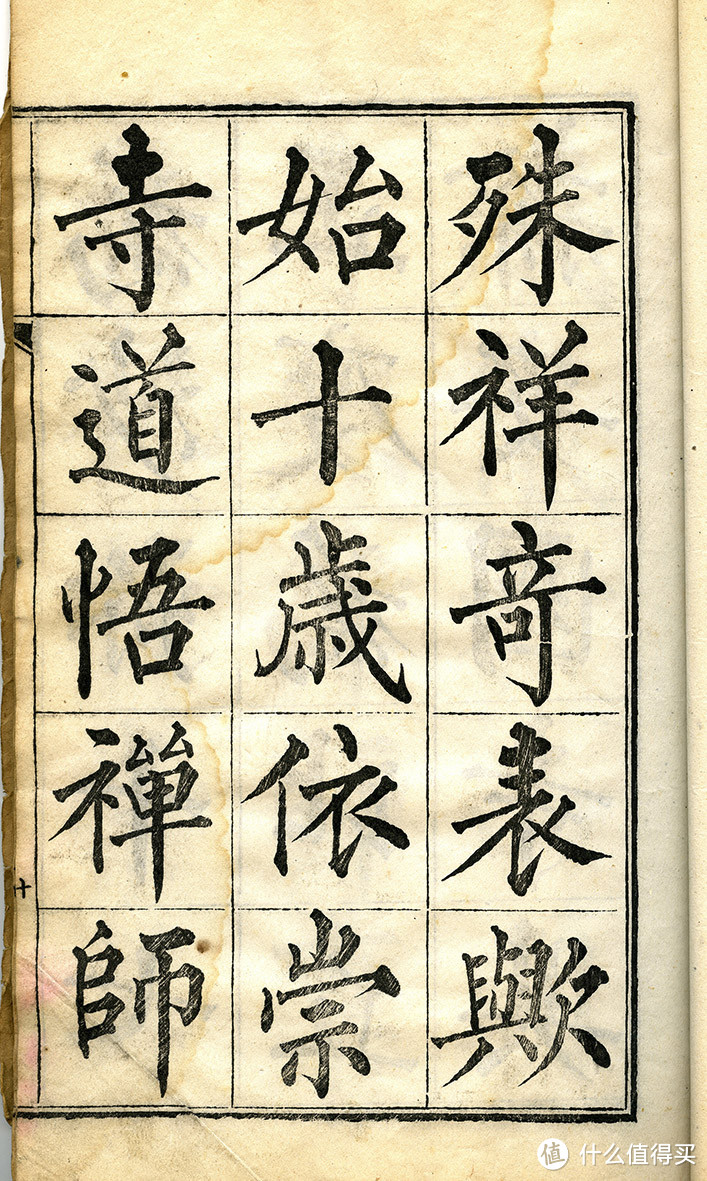 殊祥奇表歟
始十歲依崇
寺道悟禪師
十
值 什么值得买